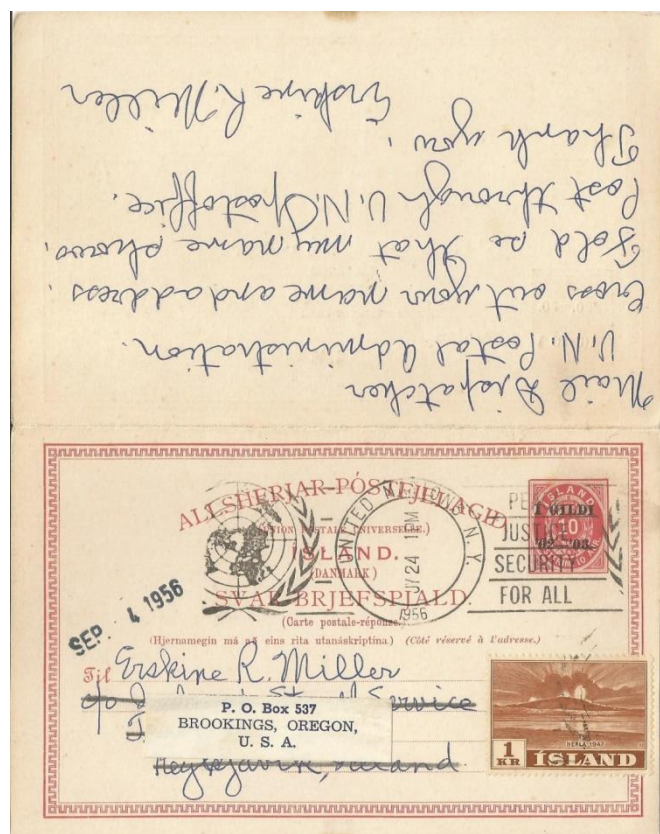 Mail Dispatcher
U.N. Postal Administration.
Cross out your name and address.
Fold so that my name shows.
Post through U.N. Postoffice.
Thank you.
Erskine R. Miller
ALLSHERJAR-PÓSTFJELAGID
(UNION POSTALE UNIVERSELLE.)
ÍSLAND.
(DANMARK)
SVAR-BRJEFSPJALD.
(Carte postale-réponse.)
(Hjernamegin má að eins rita utanáskriptina.) (Côté réservé à l'adresse.)
UNITED NATIONS N.Y.
24 1 PM
1956
PEACE
JUSTICE
SECURITY
FOR ALL
ÍSLAND
1 GILDI
10
'02-'03.
SEP 4 1956
Til Erskine R. Miller
Service
P. O. Box 537
BROOKINGS, OREGON,
U. S. A.
Reykjavik, Iceland
HEKLA 1947
1 KR ÍSLAND